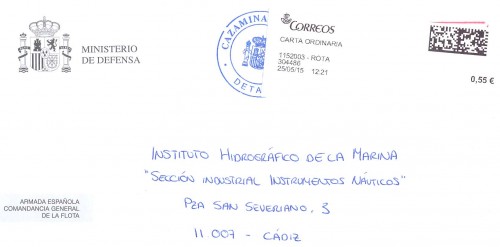 MINISTERIO
DE DEFENSA
CAZAMINA
DETA
CORREOS
CARTA ORDINARIA
1152003 - ROTA
304486
25/05/15 12:21
0,55 €
INSTITUTO HIDROGRÁFICO DE LA MARINA
"SECCIÓN INDUSTRIAL INSTRUMENTOS NÁUTICOS"
PZA SAN SEVERIANO, 3
11 007 - CÁDIZ
ARMADA ESPAÑOLA
COMANDANCIA GENERAL
DE LA FLOTA